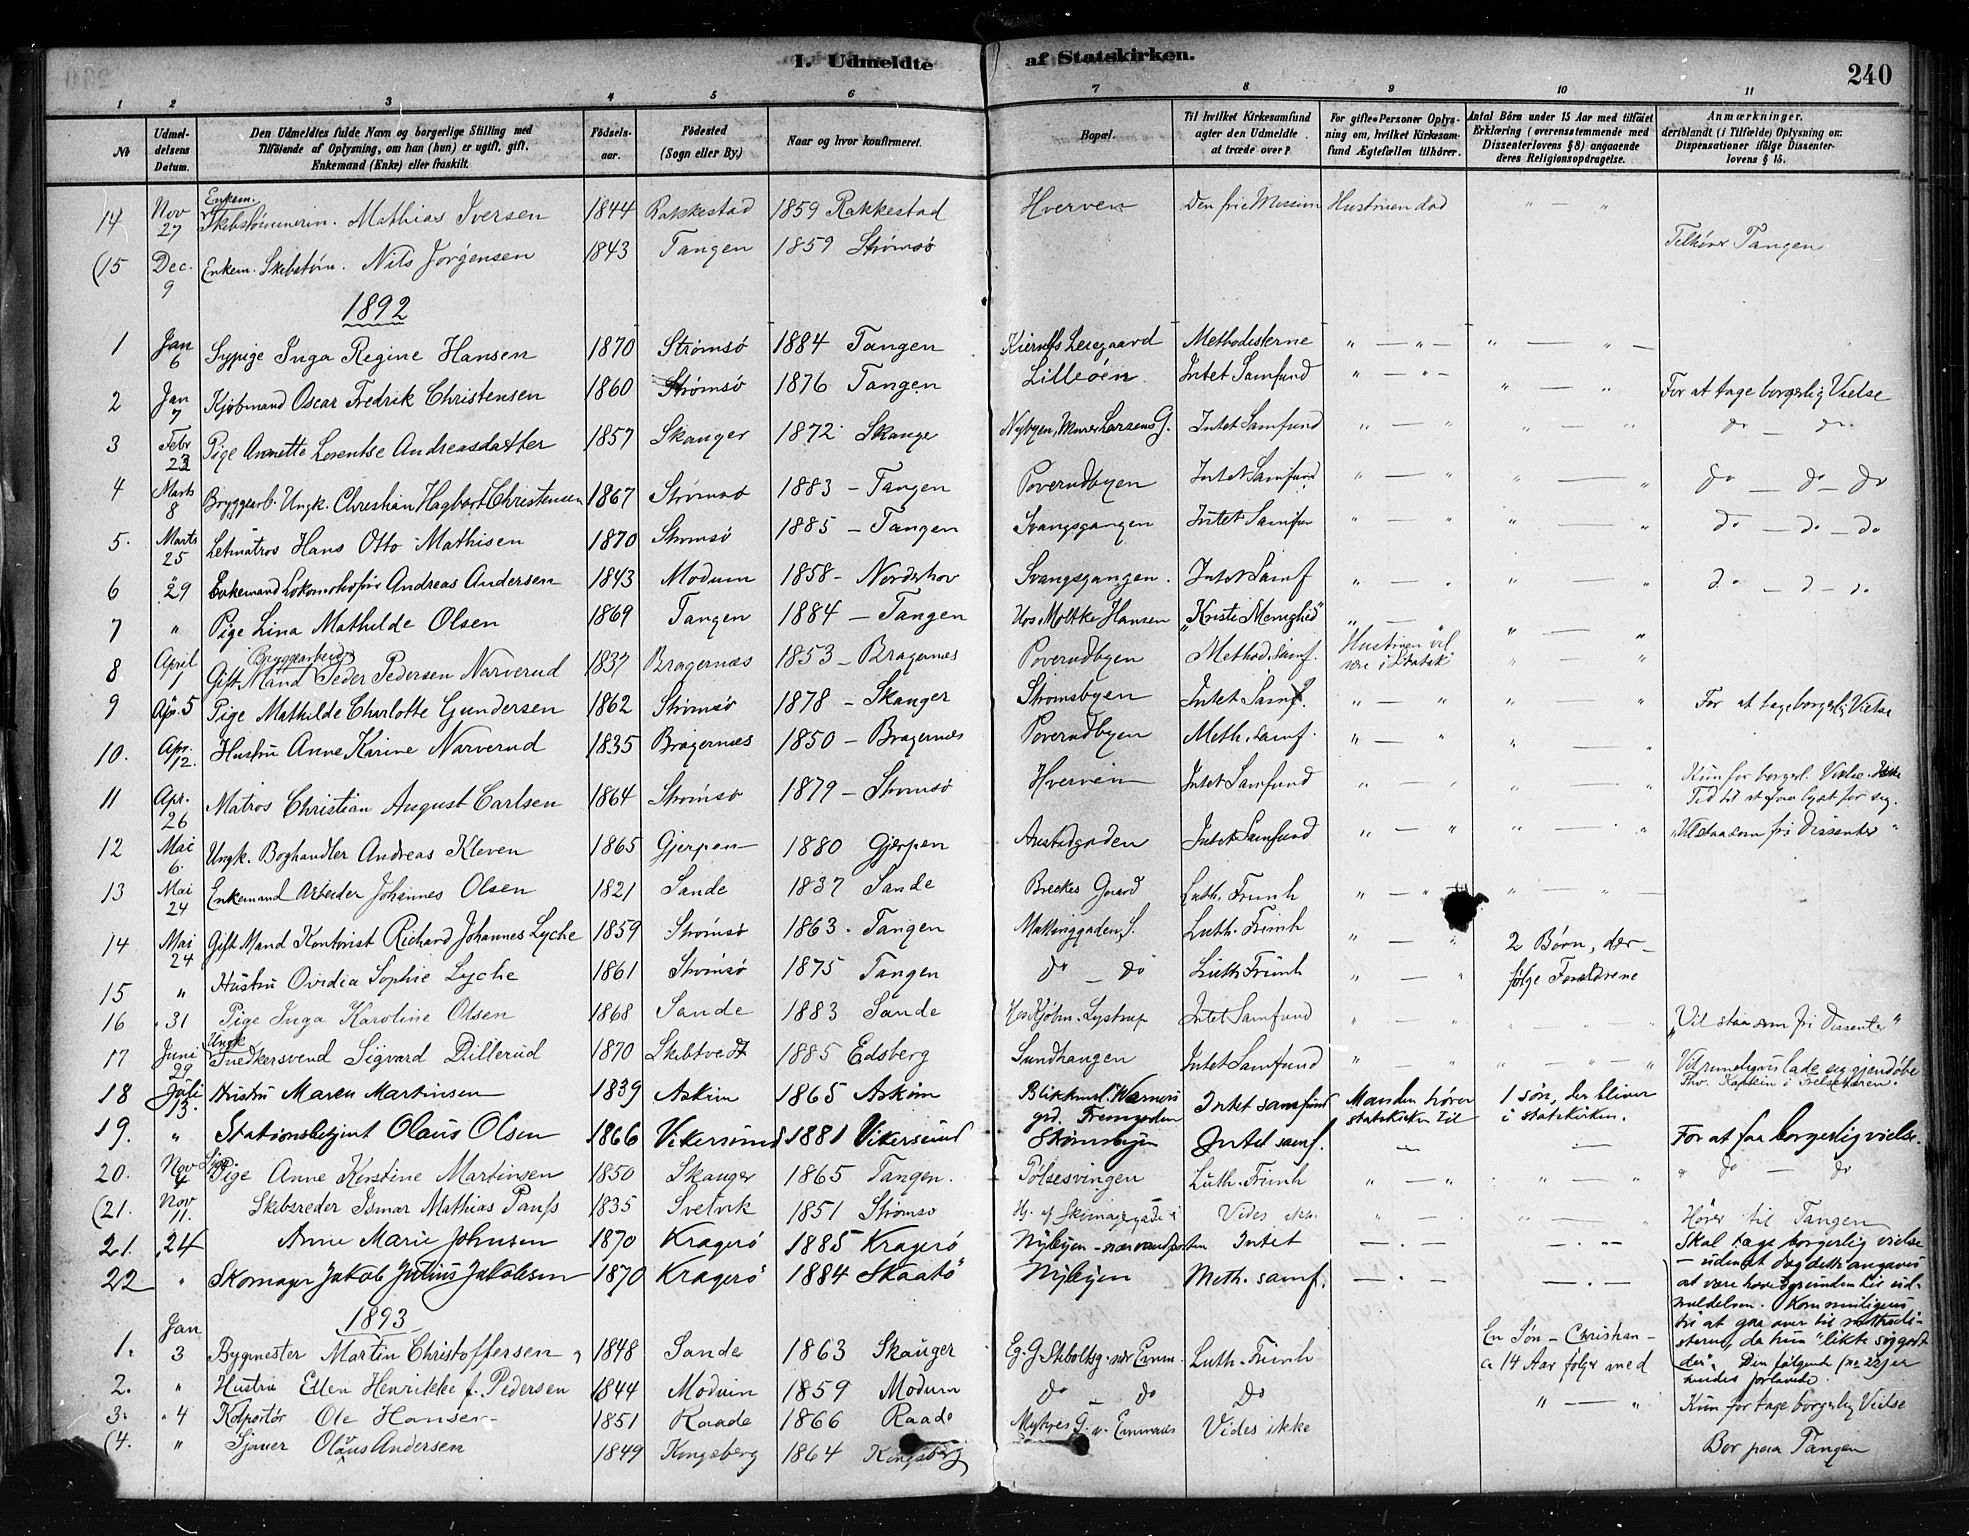 I. Udmeldte af Statskirken.
240
1 2 3 4 5 6 7 8 9 10 11
No
Udmeldelsens Datum.
Den Udmeldtes fulde Navn og borgerlige Stilling med Tilföiende af Oplysning, om han (hun) er ugift, gift, Enkemand (Enke) eller fraskilt.
Födselsaar.
Födested (Sogn eller By.)
Naar og hvor konfirmeret.
Bopæl.
Til hvilket Kirkesamfund agter den Udmeldte at træde over?
For gifte Personer Oplysning om, hvilket Kirkesamfund Ægtefællen tilhörer.
Antal Börn under 15 Aar med tilföiet Erklæring (overensstemmende med Dissenterlovens § 8) angaaende deres Religionsopdragelse.
Anmærkninger, deriblandt (i Tilfælde) Oplysning om Dispensationer ifölge Dissenterlovens § 15.
14 Nov 27 Enkem. Mathias Iversen 1844 Rakkestad 1859 Rakkestad Hverven Den frie Mission Hustruen död " — "
(15 Dec. 9 Enkem. Skibstöm. Nils Jörgensen 1843 Tangen 1859 Strömsö Tilhörer Tangen
1892
1 Jan 6 Sypige Inga Regine Hansen 1870 Strömsö 1884 Tangen Kierulfs Leiegaard Methodisterne " — " — " — " —
2 Jan 7 Kjöbmand Oscar Fredrik Christensen 1860 Strömsö 1876 Tangen Lilleöen Intet Samfund " — " — " — " For at tage borgerlig Vielse
3 Febr 23 Pige Annette Lorentse Andreasdatter 1857 Skauger 1872 Skauge Nybyen, Murer Larsens G. Intet Samfund " — " " — " do — do
4 Marts 8 Bryggearb. Ungk. Christian Hagbart Christensen 1867 Strömsö 1883 — Tangen Poverudbyen Intet Samfund " — " " — " do — do — do
5. Marts 25 Letmatros Hans Otto Mathisen 1870 Strömsö 1885 — Tangen Svangsgangen Intet Samfun " — " " " do — do — do
6 " 29 Enkemand Andreas Andersen 1843 Modum 1858 — Norderhov Svangsgangen. Intet Samf " — " " — " do — d — do
7 " Pige Lina Mathilde Olsen 1869 Tangen 1884 — Tangen Hos Moltke Hansen "Kristi Menighed" " — " " — "
8 April 1 Gift Mand Bryggearbeider Peder Pedersen Narverud 1837 Bragernæs 1853 — Bragernæs Poverudbyen Method. samf. Hustruen vil være i Statsk " — "
9 Apr. 5 Pige Mathilde Charlotte Gundersen 1862 Strömsö 1878 — Skauger Strömsbyen Intet Samf. " — " " — " For at tage borgerlig Vielse
10. Apr. 12. Hustru Anne Karine Narverud 1835 Bragernæs 1850 — Bragernæs Poverudbyen Meth. samf. " — " " — "
11 Apr. 26 Matros Christian August Carlsen 1864 Strömsö 1879 — Strömsö Hverven Intet Samfund " — " " — " Kun for borgerl. Vielse. Ikke Tid til at faa lyst for sig.
12 Mai 6 Ungk. Boghandler Andreas Kleven 1865 Gjerpen 1880 Gjerpen Austadgaden Intet Samfund " — " " — " "Vil staa som fri Dissenter"
13 Mai 24 Enkemand Arbeider Johannes Olsen 1821 Sande 1837 Sande Breckes Gaard Luth. Frimh " — " — " — " —
14 Mai 24 Gift Mand Kontorist Richard Johannes Lyche 1859 Strömsö 1863. Tangen S. Luth. Frimh " — " 2 Börn, der —
15 " Hustru Ovidia Sophie Lyche 1861 Strömsö 1875 Tangen do — do Luth. Frimh " — " fölge Forældrene
16 " 31 Pige Inga Karoline Olsen 1868 Sande 1883 Sande Hos Kjöbm. Lystrup Intet Samfund " — " "Vil staa som fri Dissenter"
17 Juni 29 Ungk Snedkersvend Sigvard Dillerud 1870 Skibtvedt 1885 Edsberg Sundhaugen Intet Samfund " — " " — " Vil rimeligvis lade sig gjendöbe Thv. Kaptein i Frelsehæren.
18 Juli 13. Hustru Maren Martinsen 1839 Askim 1865 Askim Blikkensl. Werners grd. Intet samfund Manden hörer statskirken til 1 sön, der bliver i statskirken.
19. " Stationsbetjent Olaus Olsen 1866 Vikersund 1881 Vikersund Strömsbyen Intet samf. — — For at faa borgerlig vielse.
20. Nov 4 Pige Anne Kirstine Martinsen 1850 Skauger 1865 Tangen. Pölsesvingen Luth. Frimh " — " " — " " do — do
(21. Nov 11. Skibsreder Ismar Mathias Pauss 1835 Svelvik 1851 Strömsö Vides ikke " — " " — " Hörer til Tangen
21. " 24 Anne Marie Johnsen 1870 Kragerö 1885 Kragerö Nybyen — nær vandposten Intet — . — — . — Skal tage borgerlig vielse
22 " Skomager Jakob Julius Jakobsen 1870 Kragerö 1884 Skaatö Nybyen Meth. samf. — . — — . — — uden at dog dette angaves at være hovedgrunden til udmeldelsen. Kom rimeligvis til at gaa over til methodisterne, da hun "likte sig godt der". Den fölgende (no 22) er hendes forlovede.
1893
1. Jan 3 Bygmester Martin Christoffersen 1848 Sande 1863 Skauger Luth. Frimh En Sön — Christian — c. 14 Aar fölger med
2. " Hustru Ellen Henrikke f. Pedersen 1844 Modum 1859 Modum do — do Do
3. " 4 Kolportör Ole Hansen 1851 Raade 1866 Raade Vides ikke " — " Kun for tage borgerlig Vielse
(4. " Sjauer Olaus Andersen 1849 Kongsberg 1864 Kongsberg Bor paa Tangen